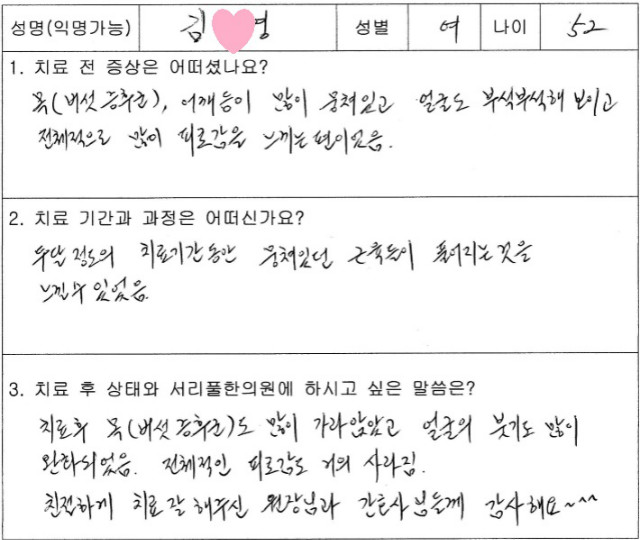 성명(익명가능) 김 영 성별 여 나이 52
1. 치료 전 증상은 어떠셨나요?
목(버섯증후군), 어깨등이 많이 뭉쳐있고 얼굴도 부석부석해 보이고
전체적으로 많이 피로감을 느끼는 편이었음.
2. 치료 기간과 과정은 어떠신가요?
두달 정도의 치료기간동안 뭉쳐있던 근육들이 풀어지는 것을
느낄수 있었음.
3. 치료 후 상태와 서리풀한의원에 하시고 싶은 말씀은?
치료후 목(버섯증후군)도 많이 가라앉았고 얼굴의 붓기도 많이
완화되었음. 전체적인 피로감도 거의 사라짐.
친절하게 치료 잘 해주신 원장님과 간호사분들께 감사해요~^^